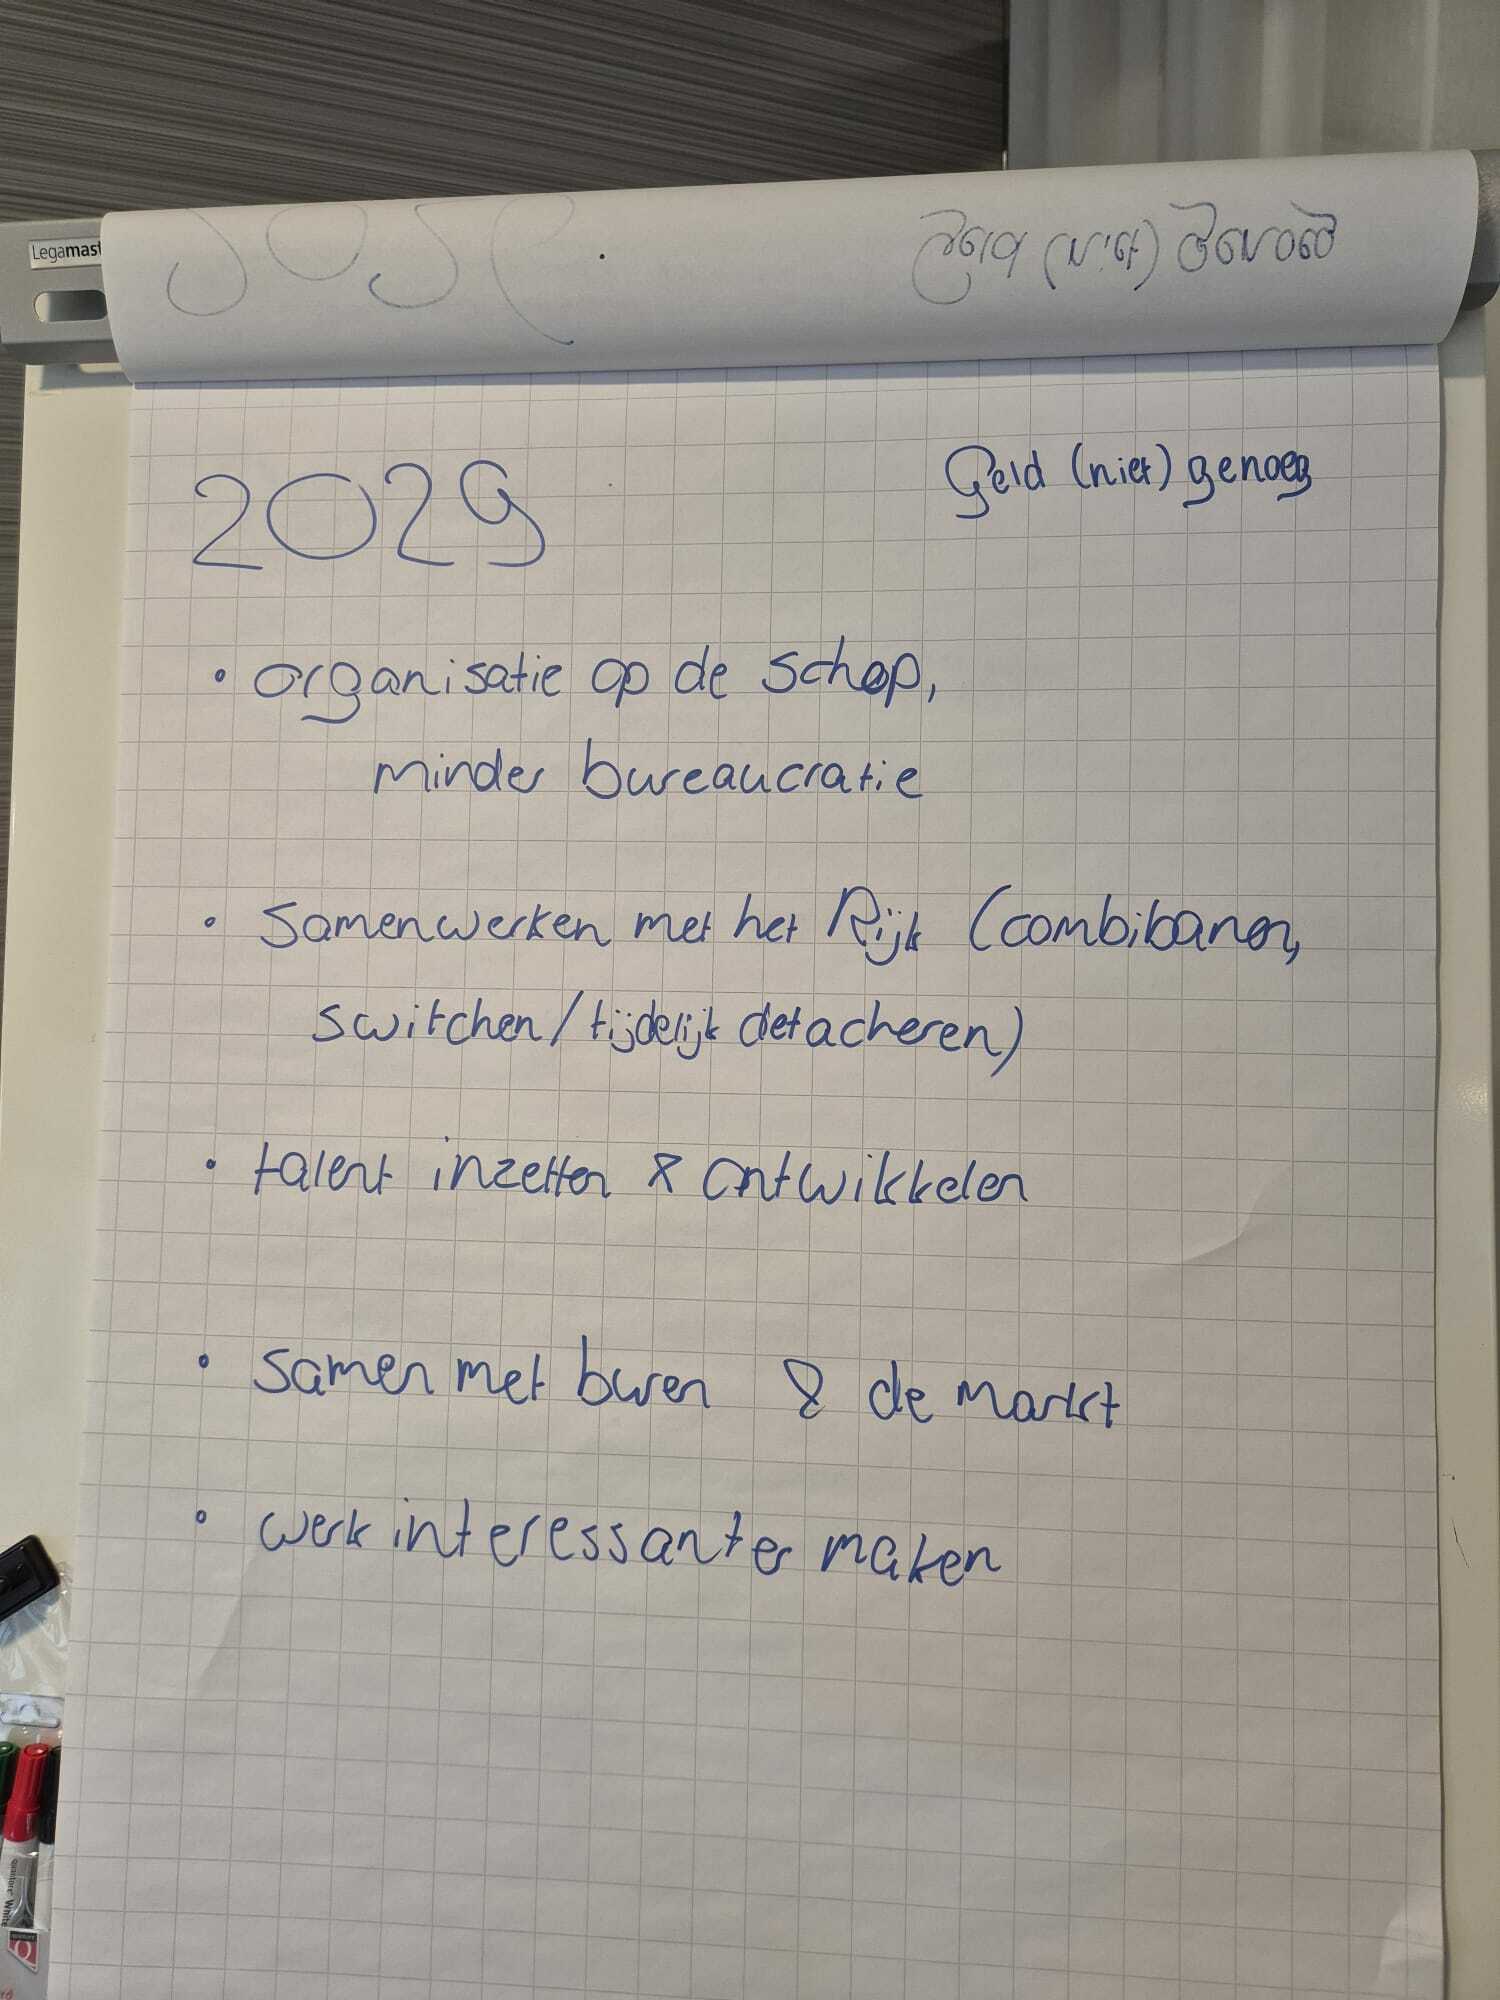 Legamast
2029
Geld (niet) genoeg
• organisatie op de schop,
minder bureaucratie
• samenwerken met het Rijk (combibanen,
switchen/tijdelijk detacheren)
• talent inzetten & ontwikkelen
• samen met buren & de markt
• werk interessanter maken